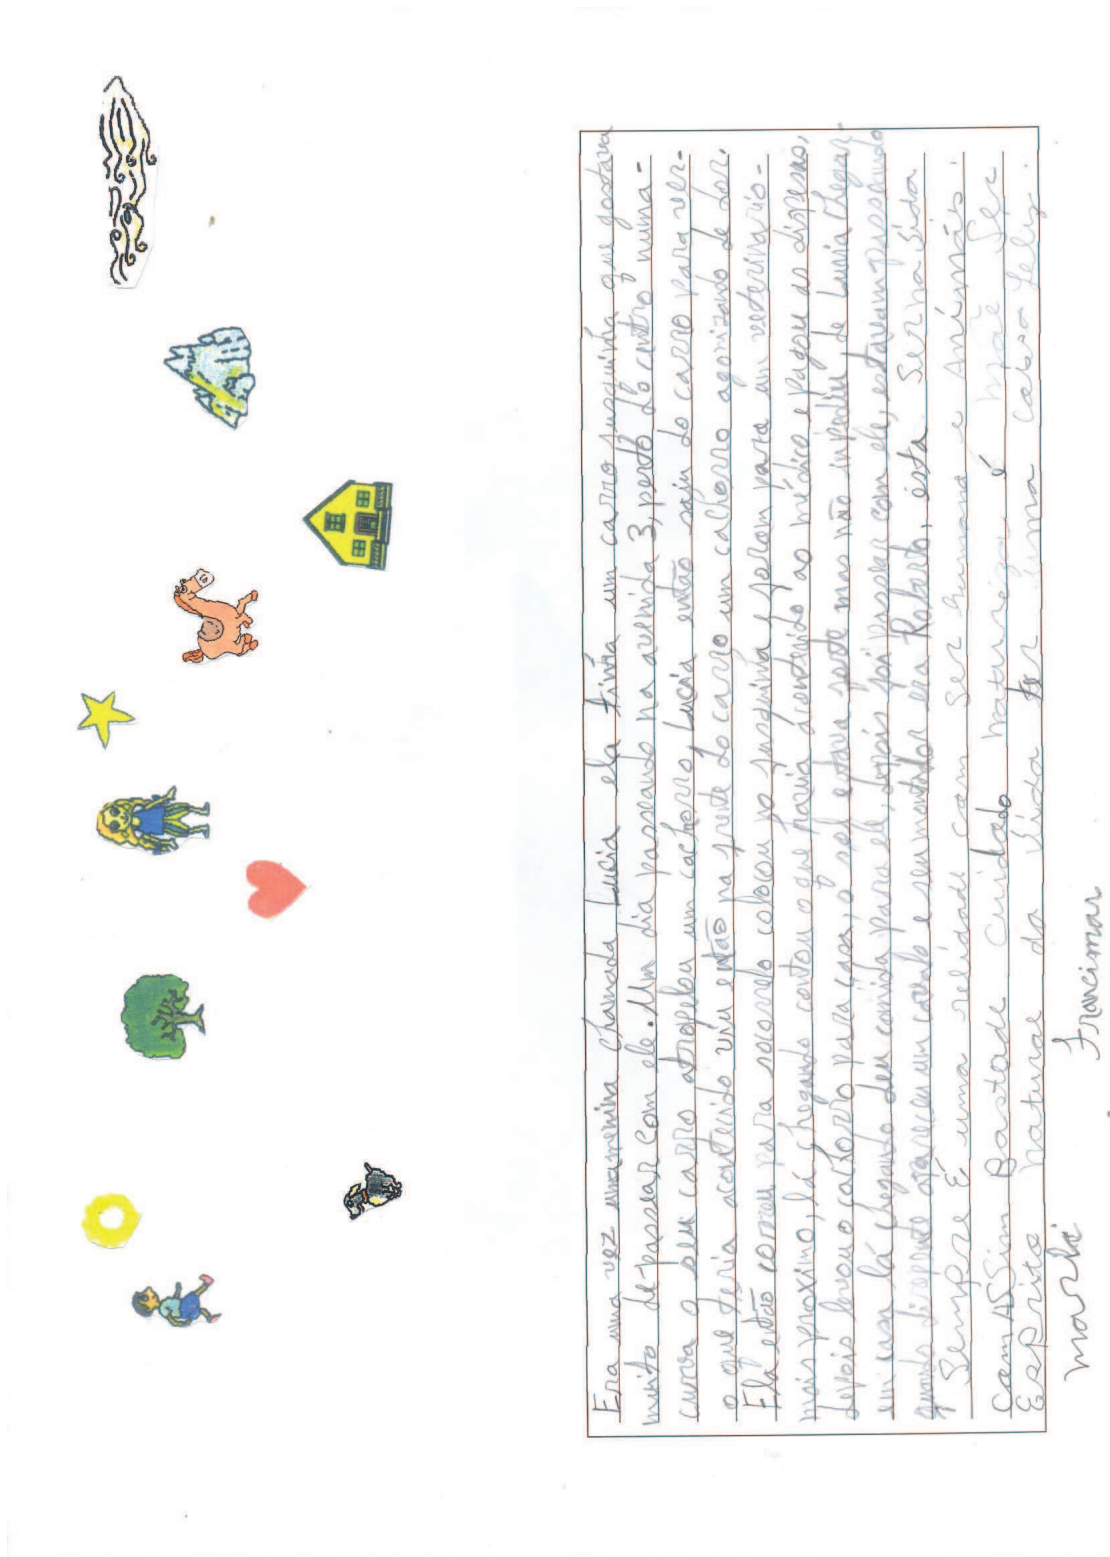 Era uma vez uma menina chamada Lucia ela tinha um carro fusquinha que gostava
muito de passear com ele. Um dia passeando na avenida 3, perto do centro numa-
curva o seu carro atropelou um cachorro, Lucia então saiu do carro para ver-
o que teria acontecido viu então na frente do carro um calhorro agonizando de dor,
Ela então correu para socorrelo colocou no fusquinha e foram para um veterinario-
mais proximo, lá chegando contou o que havia acontecido ao médico e pagou as dispesas,
depois levou o cachorro para casa, o sol estava forte mas não inpediu de Lucia chegar
em casa lá chegando deu comida para ele, depois foi passear com ele, estavam passeando
quando direpente apareceu um cavalo e seu montador era Roberto, esta Ser na Sida
Sempre É uma realidade com Ser humano e Animáis.
com ASSim Bastade Cuidado natureza é mãe Ser
Esprito natural da Vida ter uma cabsa feliz.
marli Francimar